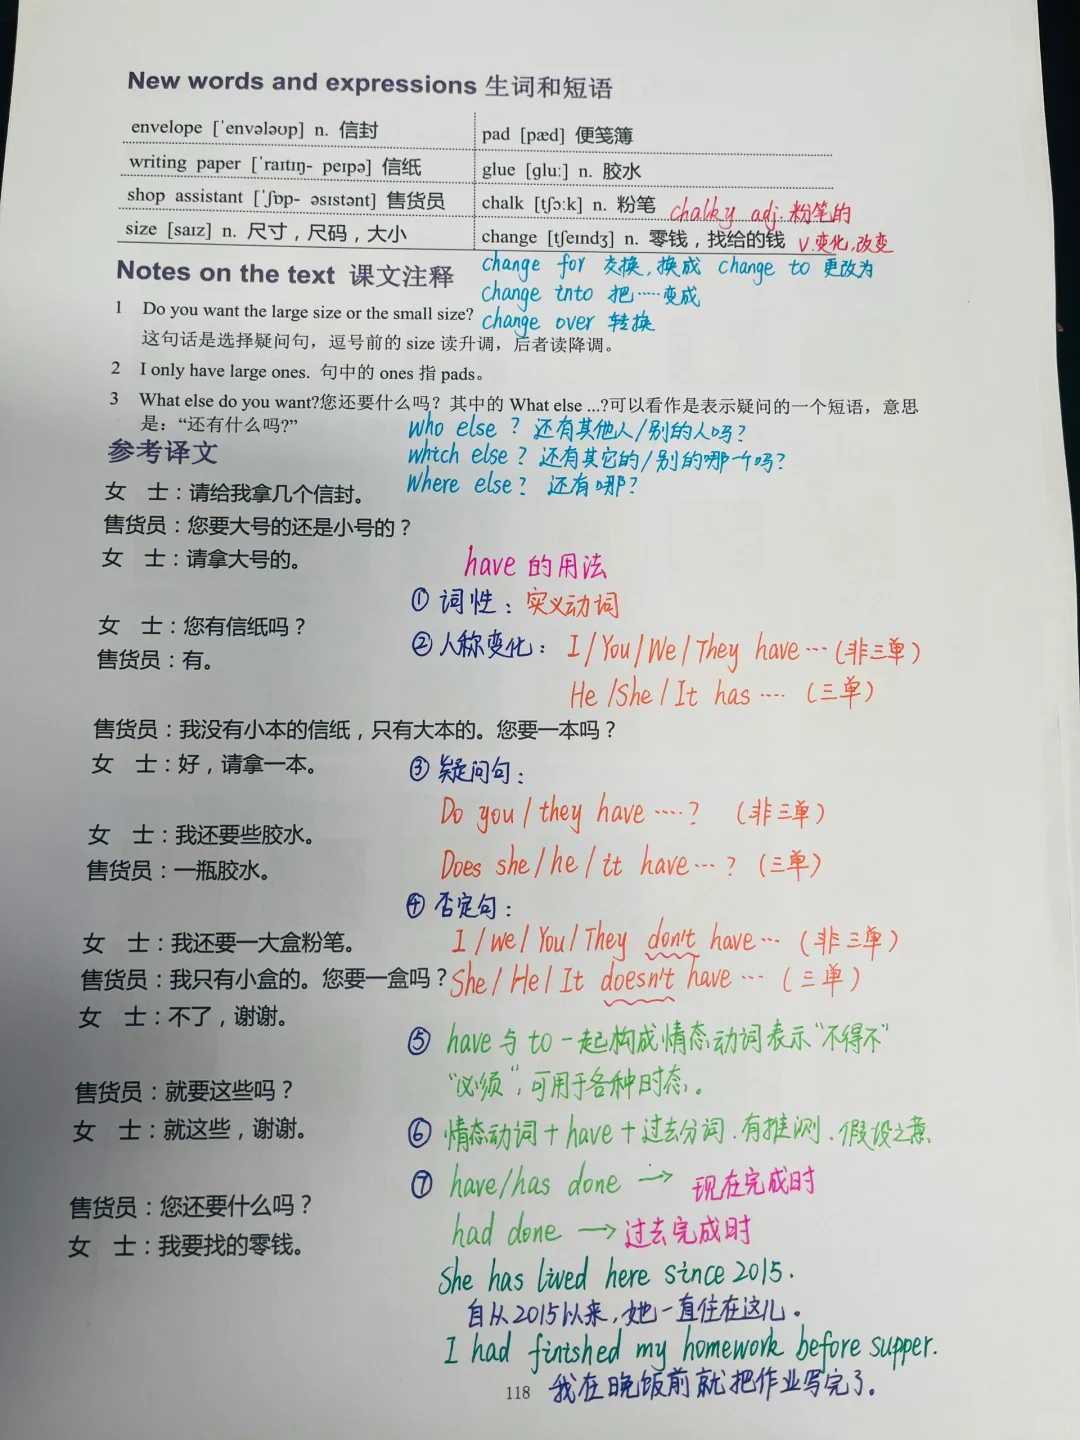 New words and expressions 生词和短语
envelope [ˈenvələʊp] n. 信封
pad [pæd] 便笺簿
writing paper [ˈraɪtɪŋ- peɪpə] 信纸
glue [gluː] n. 胶水
shop assistant [ˈʃɒp- əsɪstənt] 售货员
chalk [tʃɔːk] n. 粉笔 chalky adj. 粉笔的
size [saɪz] n. 尺寸，尺码，大小
change [tʃeɪndʒ] n. 零钱，找给的钱 v. 变化,改变
change for 交换, 换成 change to 更改为
change into 把……变成
change over 转换
Notes on the text 课文注释
1 Do you want the large size or the small size?
这句话是选择疑问句，逗号前的 size 读升调，后者读降调。
2 I only have large ones. 句中的 ones 指 pads。
3 What else do you want?您还要什么吗？其中的 What else ...?可以看作是表示疑问的一个短语，意思
是：“还有什么吗?”
who else ? 还有其他人/别的人吗?
which else ? 还有其它的/别的哪一个吗?
where else? 还有哪?
参考译文
女　士：请给我拿几个信封。
售货员：您要大号的还是小号的？
女　士：请拿大号的。
have 的用法
① 词性：实义动词
女　士：您有信纸吗？
② 人称变化：I/You/We/They have…(非三单)
售货员：有。
He/She/It has…. (三单)
售货员：我没有小本的信纸，只有大本的。您要一本吗？
女　士：好，请拿一本。
③ 疑问句：
Do you/they have ….? (非三单)
女　士：我还要些胶水。
售货员：一瓶胶水。
Does she/he/it have…? (三单)
④ 否定句：
女　士：我还要一大盒粉笔。
I/we/You/They don't have… (非三单)
售货员：我只有小盒的。您要一盒吗？
She/He/It doesn't have… (三单)
女　士：不了，谢谢。
⑤ have 与 to 一起构成情态动词表示“不得不”
“必须”,可用于各种时态。
售货员：就要这些吗？
女　士：就这些，谢谢。
⑥ 情态动词+have+过去分词.有推测、假设之意.
⑦ have/has done → 现在完成时
售货员：您还要什么吗？
had done → 过去完成时
女　士：我要找的零钱。
She has lived here since 2015.
自从2015以来,她一直住在这儿。
I had finished my homework before supper.
我在晚饭前就把作业写完了。
118